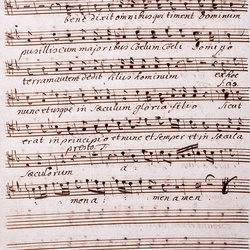 bene dixit omnibus qui timent Dominum
pusillis cum majoribus coelum coeli Domino
terram autem dedit filiis hominum
nunc et usque in saeculum gloria filio sicut
erat in principio et nunc et semper et in saecula
presto
saeculorum a
men a men a men